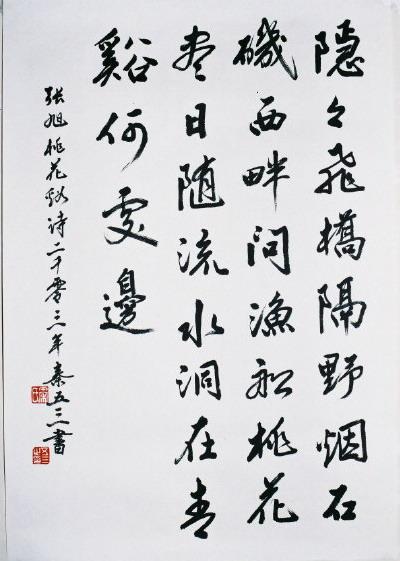 隐々飛橋隔野烟石
磯西畔问漁船桃花
尽日随流水洞在青
谿何處邊
张旭桃花谿诗二千零三年秦五三書